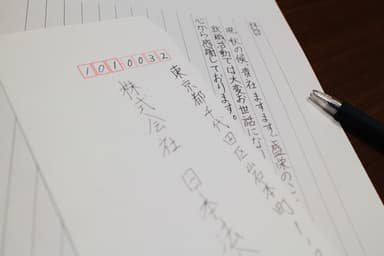 拝啓
晩秋の候、貴社ますます、盛栄のこ
就職活動では大変お世話になり
心から感謝しております。
1010032
東京都千代田区岩本町
株式会社 日本